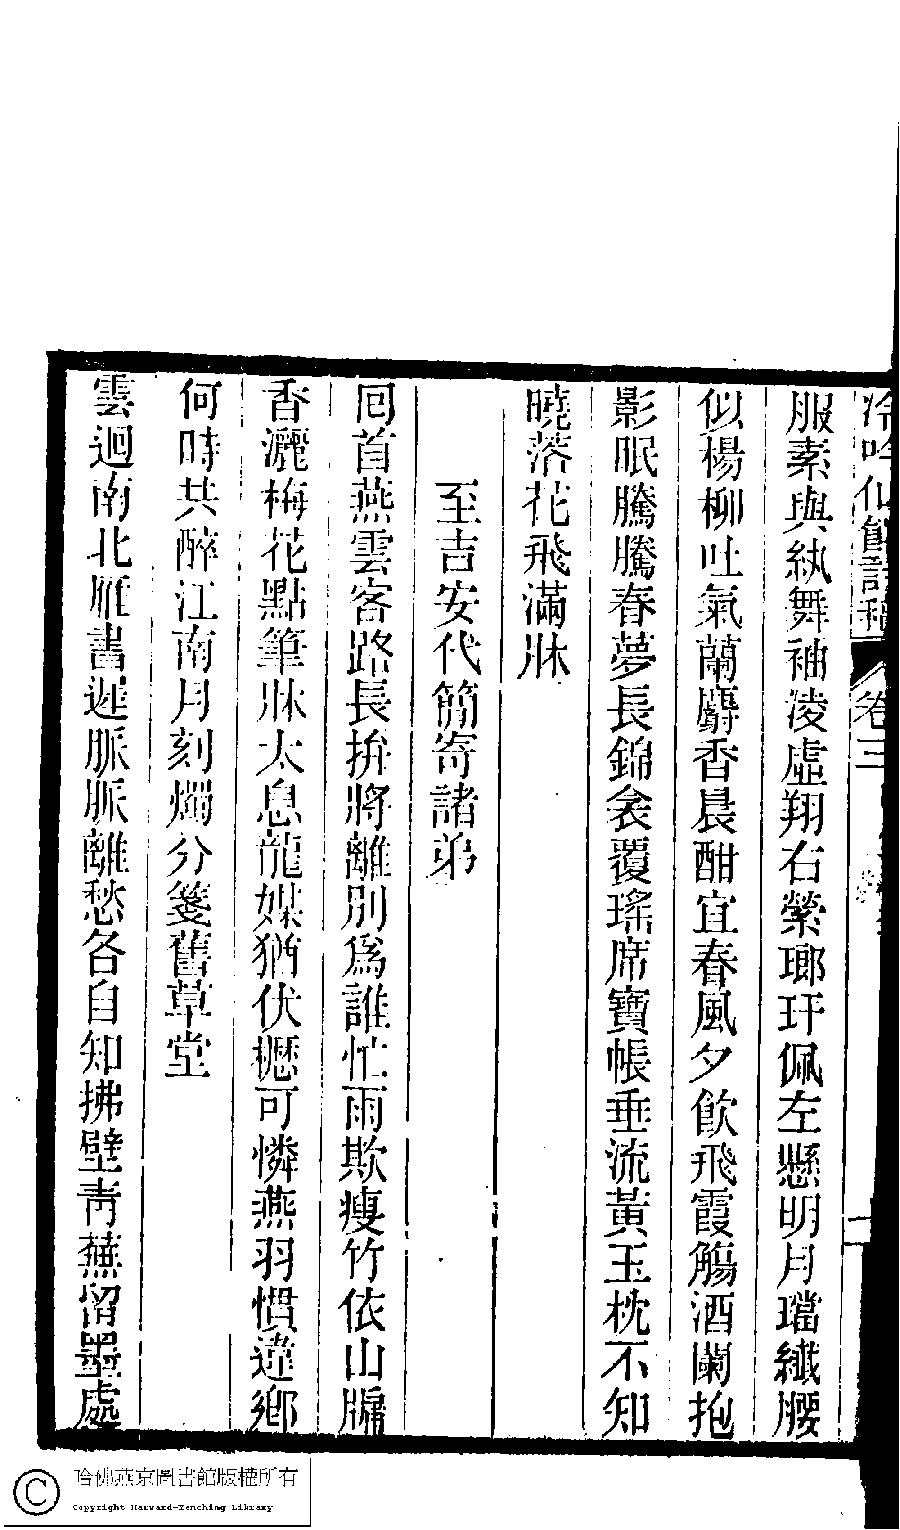 冷吟仙館詩稿 卷三
服素與紈舞袖凌虛翔右縈瑯玕佩左懸明月璫纖腰
似楊柳吐氣蘭麝香晨酣宜春風夕飲飛霞觴酒闌抱
影眠騰騰春夢長錦衾覆瑤席寶帳垂流黃玉枕不知
曉落花飛滿牀
至吉安代簡寄諸弟
囘首燕雲客路長拚將離別爲誰忙雨欺瘦竹依山牖
香灑梅花點筆牀太息龍媒猶伏櫪可憐燕羽慣違鄉
何時共醉江南月刻燭分箋舊草堂
雲迴南北雁書遲脈脈離愁各自知拂壁靑蕪留墨處
哈佛燕京圖書館版權所有
Copyright Harvard-Yenching Library